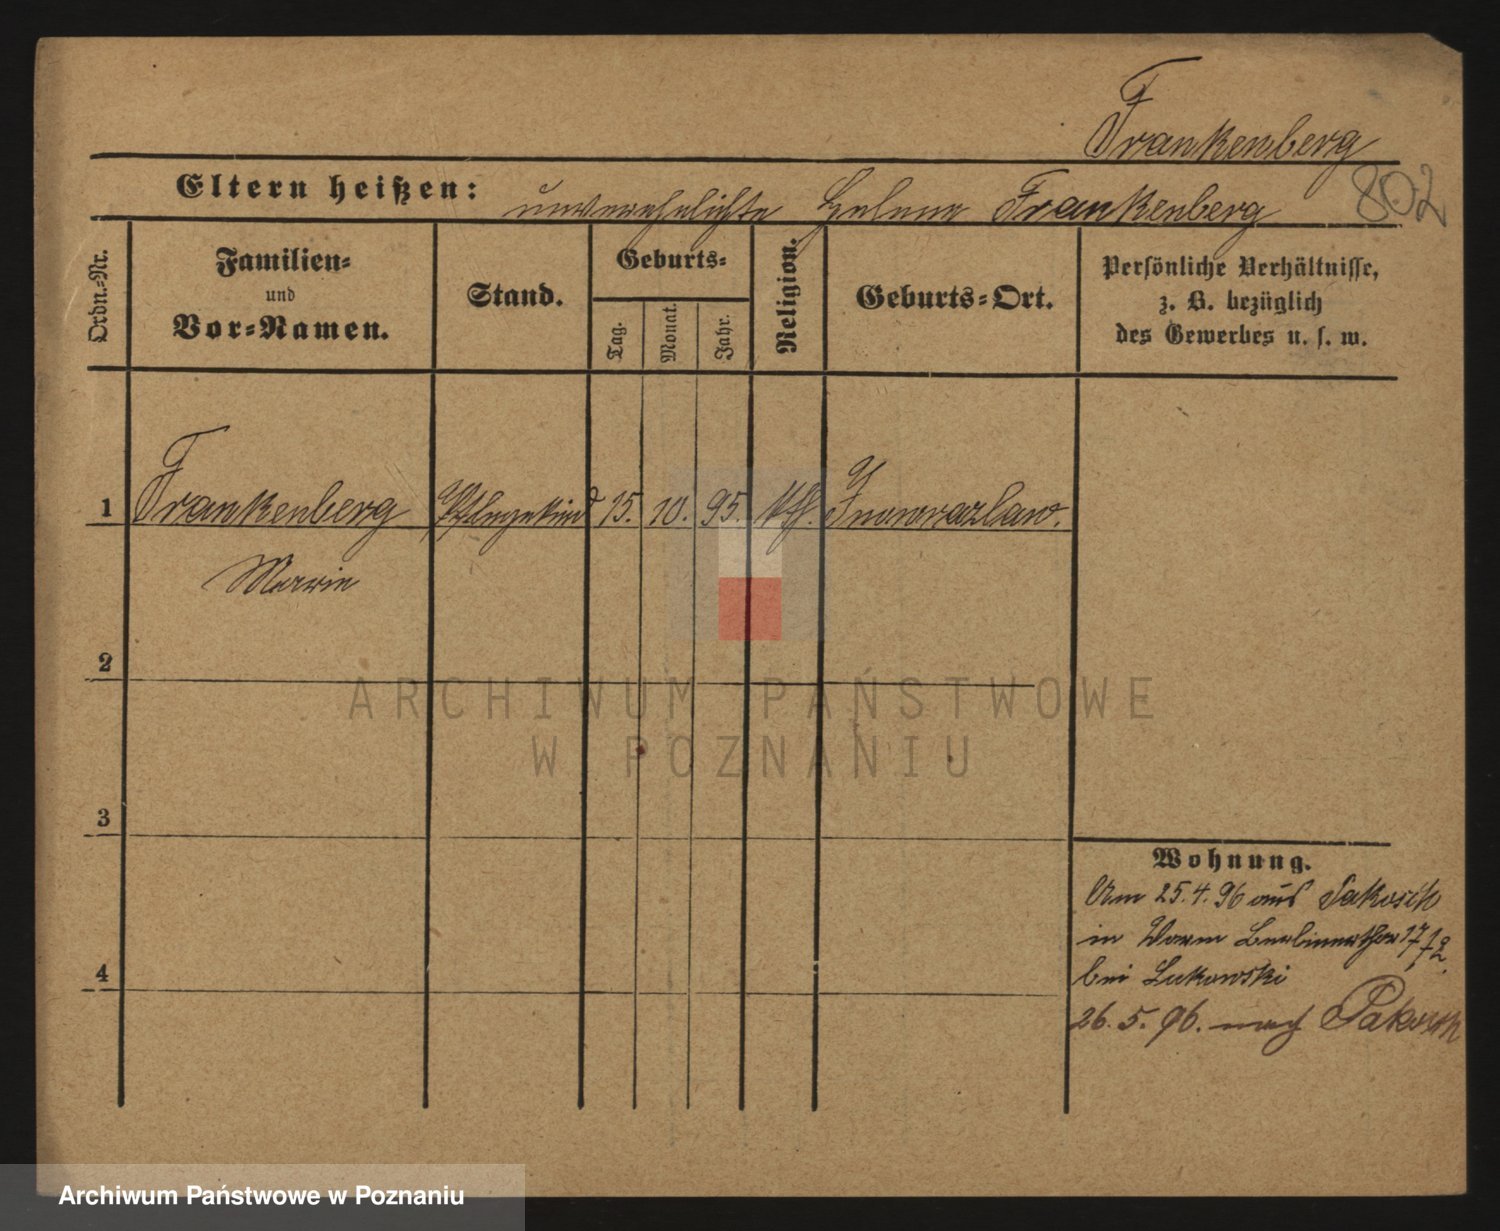 Frankenberg
802
Eltern heißen: unverehelichte Helene Frankenberg
Ordn.-Nr.
Familien-
und
Vor-Namen.
Stand.
Geburts-
Tag.
Monat.
Jahr.
Religion.
Geburts-Ort.
Persönliche Verhältnisse,
z. B. bezüglich
des Gewerbes u. s. w.
1 Frankenberg Pflegekind 15. 10. 95. kth. Inowrazlaw.
Marie
2
3
4
Wohnung.
Am 25.4.96 aus Pakosch
in Berlinerthor 17/12
bei Lukowski
26.5.96. nach Pakosch
ARCHIWUM PAŃSTWOWE
W POZNANIU
Archiwum Państwowe w Poznaniu